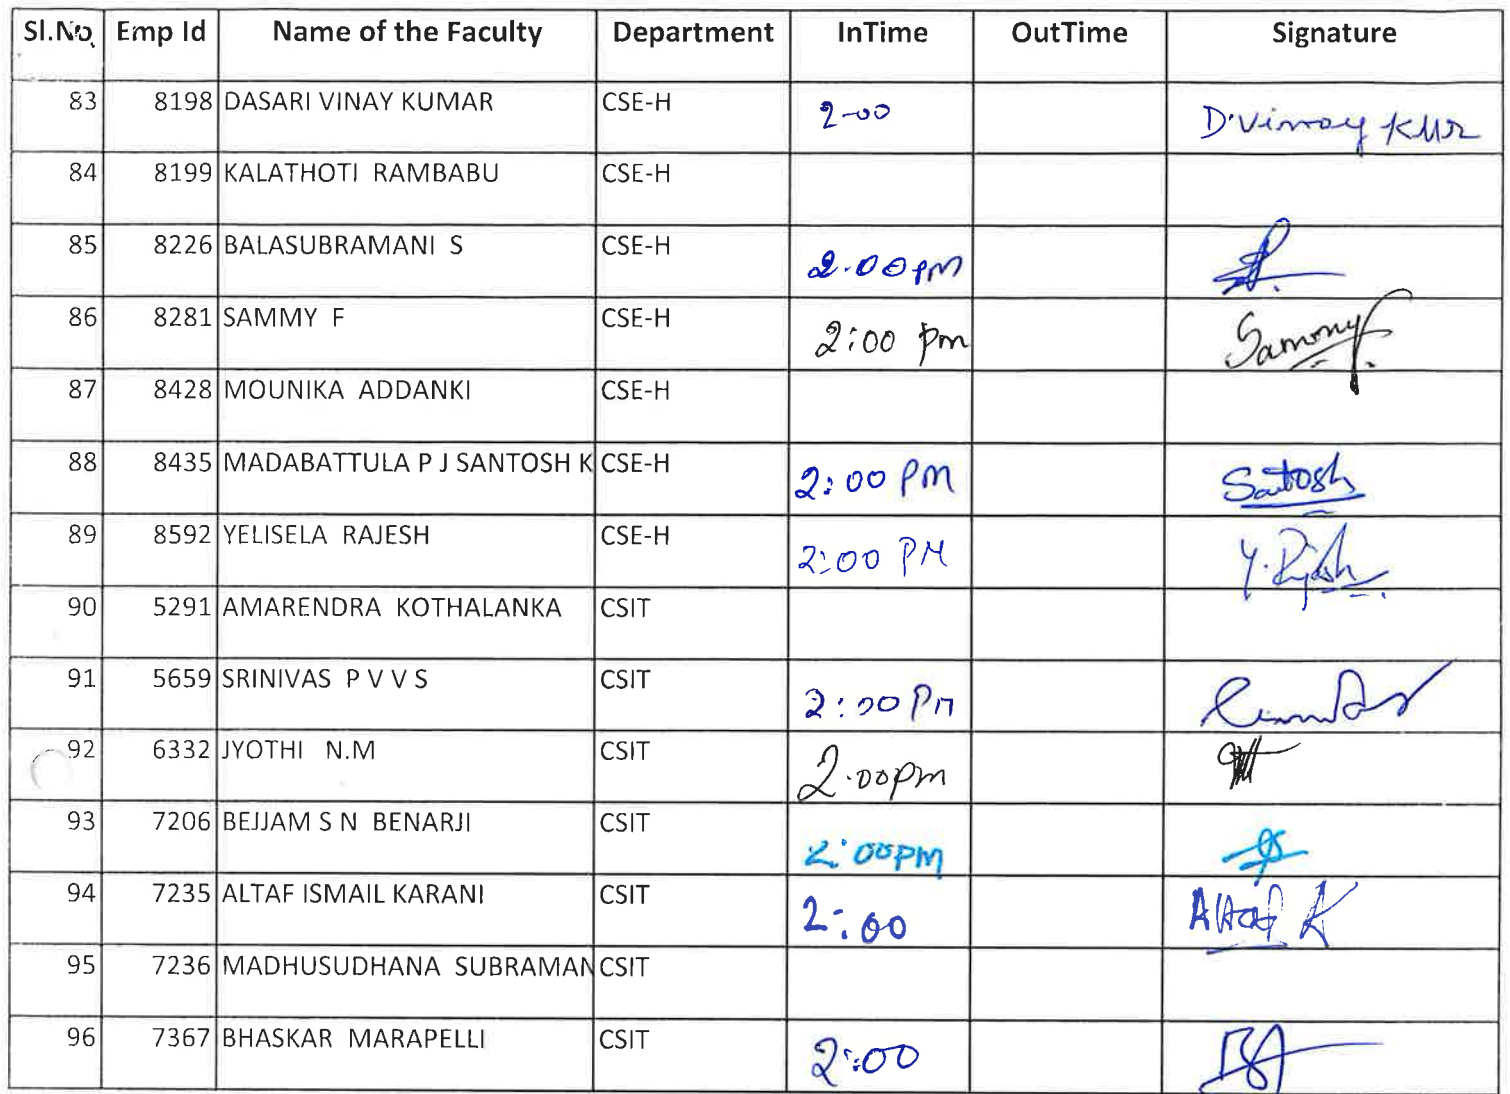 Sl.No Emp Id Name of the Faculty Department InTime OutTime Signature
83 8198 DASARI VINAY KUMAR CSE-H 2-00 D.Vinay KUR
84 8199 KALATHOTI RAMBABU CSE-H
85 8226 BALASUBRAMANI S CSE-H 2.00pm
86 8281 SAMMY F CSE-H 2:00 pm Sammy F
87 8428 MOUNIKA ADDANKI CSE-H
88 8435 MADABATTULA P J SANTOSH K CSE-H 2:00 PM Santosh
89 8592 YELISELA RAJESH CSE-H 2:00 PM Y. Rajesh
90 5291 AMARENDRA KOTHALANKA CSIT
91 5659 SRINIVAS P V V S CSIT 2:00 Pm
92 6332 JYOTHI N.M CSIT 2.00pm
93 7206 BEJJAM S N BENARJI CSIT 2:00pm
94 7235 ALTAF ISMAIL KARANI CSIT 2:00 Altaf K
95 7236 MADHUSUDHANA SUBRAMAN CSIT
96 7367 BHASKAR MARAPELLI CSIT 2:00